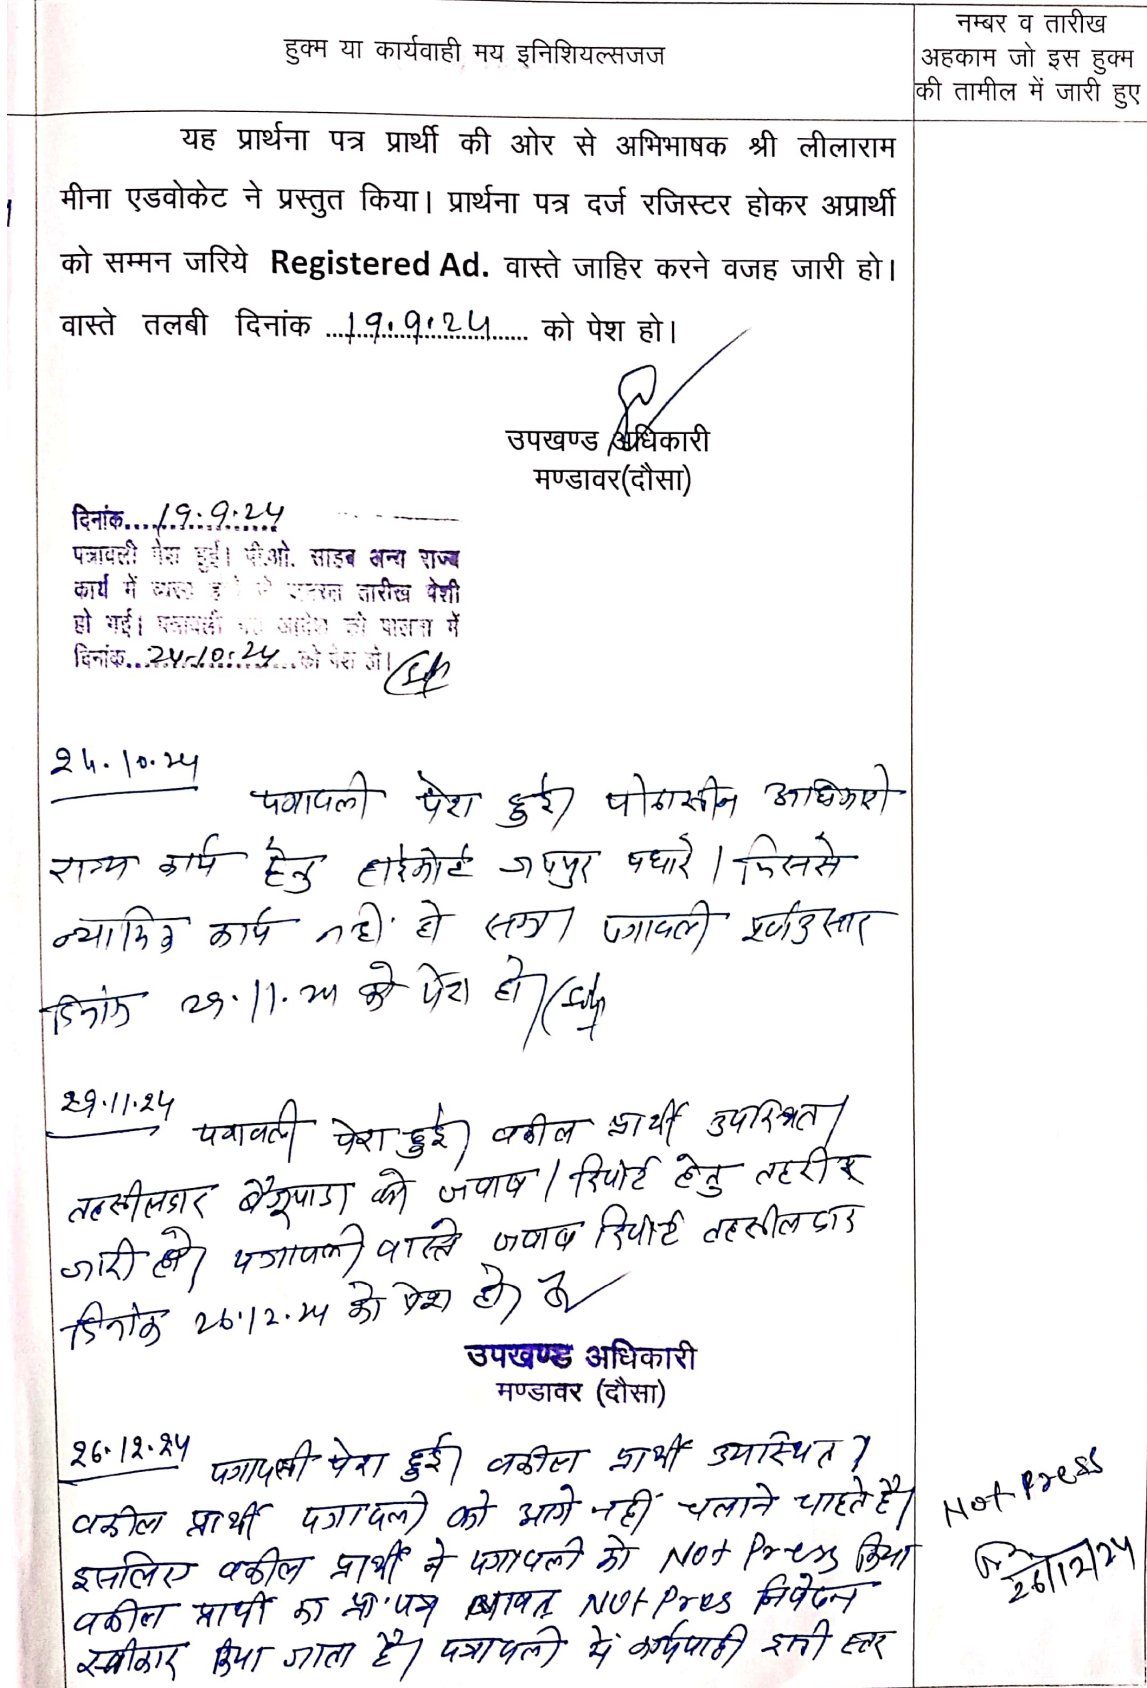 हुक्म या कार्यवाही मय इनिशियल्सजज
नम्बर व तारीख
अहकाम जो इस हुक्म
की तामील में जारी हुए
यह प्रार्थना पत्र प्रार्थी की ओर से अभिभाषक श्री लीलाराम
मीना एडवोकेट ने प्रस्तुत किया। प्रार्थना पत्र दर्ज रजिस्टर होकर अप्रार्थी
को सम्मन जरिये Registered Ad. वास्ते जाहिर करने वजह जारी हो।
वास्ते तलबी दिनांक ...19.9.24... को पेश हो।
उपखण्ड अधिकारी
मण्डावर(दौसा)
दिनांक....19.9.24
पत्रावली पेश हुई। पी.ओ. साहब अन्य राज्य
कार्य में व्यस्त तारीख पेशी
हो गई। पत्रावली आदेश की पालना में
दिनांक...24.10.24...को पेश हो।
24.10.24
पत्रावली पेश हुई। पीठासीन अधिकारी
राज्य कार्य हेतु हाईकोर्ट जयपुर पधारे। जिससे
न्यायिक कार्य नहीं हो सका। पत्रावली पूर्वानुसार
दिनांक 29.11.24 को पेश हो।
29.11.24
पत्रावली पेश हुई। वकील प्रार्थी उपस्थित।
तहसीलदार बैजूपाडा को जवाब/रिपोर्ट हेतु तहरीर
जारी हो। पत्रावली वास्ते जवाब रिपोर्ट तहसीलदार
दिनांक 26.12.24 को पेश हो।
उपखण्ड अधिकारी
मण्डावर (दौसा)
26.12.24
पत्रावली पेश हुई। वकील प्रार्थी उपस्थित।
वकील प्रार्थी पत्रावली को आगे नहीं चलाने चाहते है।
इसलिए वकील प्रार्थी ने पत्रावली को Not Press किया
वकील प्रार्थी का प्रा.पत्र बाबत Not Press निवेदन
स्वीकार किया जाता है। पत्रावली में कार्यवाही इसी स्तर
Not Press
26/12/24